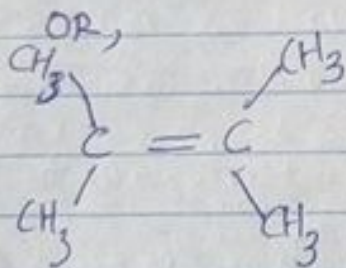 OR,
CH3 CH3
C = C
CH3 CH3